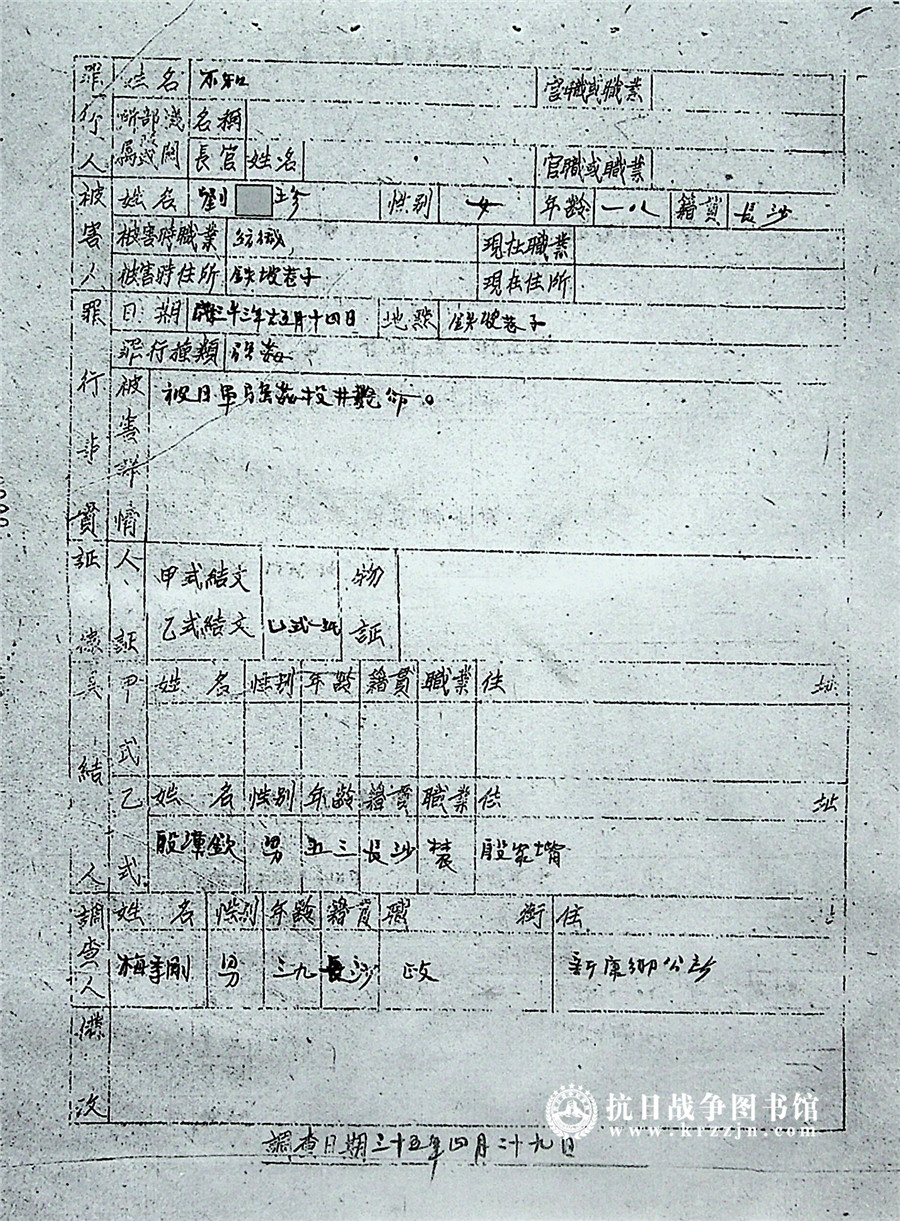 罪行人 姓名 不知 官職或職業
所部或
屬或機関 名稱
長官 姓名 官職或職業
被害人 姓名 劉 珍 性别 女 年齡 一八 籍貫 長沙
被害時職業 紡織 現在職業
被害時住所 鉄坡巷子 現在住所
罪行事實 日期 三十三年 五月十四日 地點 鉄坡巷子
罪行種類 强姦
被害詳情 被日軍强姦投井斃命。
証據 人証 甲式結文 物証
乙式結文 乙式一紙
具結人 甲式 姓名 性别 年齡 籍貫 職業 住址
乙式 姓名 性别 年齡 籍貫 職業 住址
殷漢欽 男 五三 長沙 農 殷家塯
調查人 姓名 性别 年齡 籍貫 職銜 住
梅季剛 男 三九 長沙 政 新康鄉公所
備攷
調查日期三十五年四月二十九日
抗日战争图书馆
www.krzzjn.com